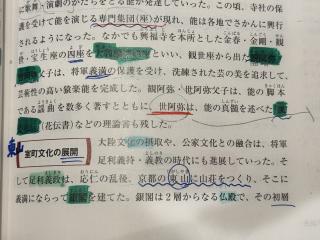 に歌舞・演劇のかたちをとる能が発達していった。この頃、寺社の保
護を受けて能を演じる専門集団(座)が現れ、能は各地でさかんに興行
されるようになった。なかでも興福寺を本所とした金春・金剛・観
世・宝生座の四座を といい、観世座から出た
父子は、将軍義満の保護を受け、洗練された芸の美を追求して、
芸術性の高い猿楽能を完成した。観阿弥・世阿弥は、能の脚本
である謡曲を数多く著すとともに、世阿弥は、能の真髄を述べた
(花伝書)などの理論書も残した。
東山
室町文化の展開
大陸文化の摂取や、公家文化との融合は、将軍
足利義持・義教の時代にも進展していった。そ
して足利義政は、応仁の乱後、京都の東山に山荘をつくり、そこに
義満にならって銀閣を建てた。銀閣は2層からなる仏殿で、その初層